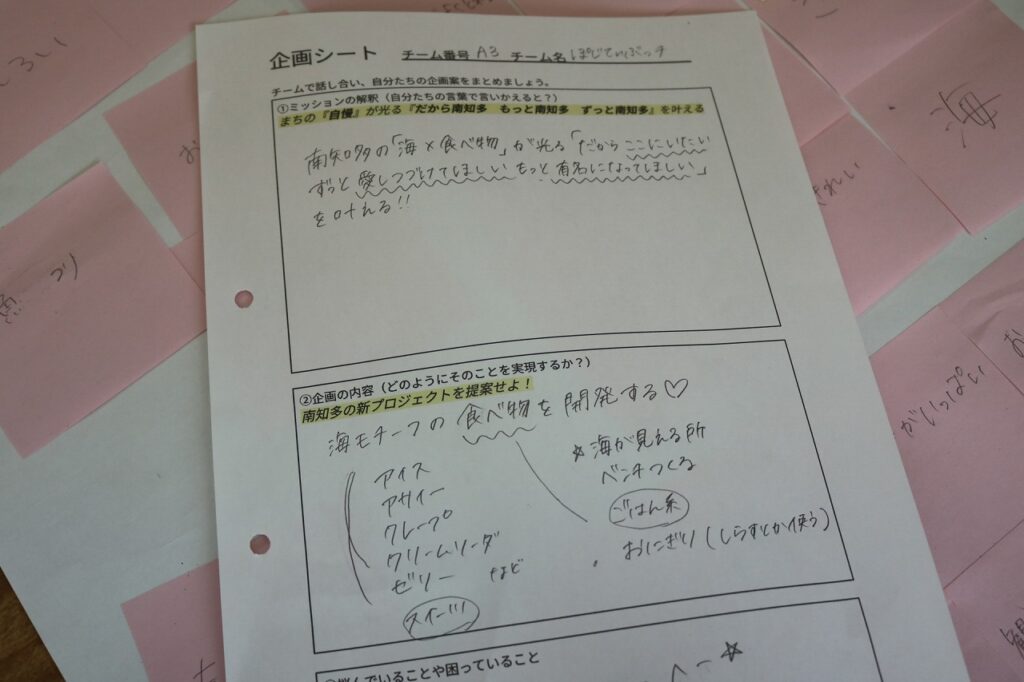 企画シート チーム番号 A3 チーム名 ぽじてぃぶっチ
チームで話し合い、自分たちの企画案をまとめましょう。
①ミッションの解釈（自分たちの言葉で言いかえると？）
まちの『自慢』が光る『だから南知多 もっと南知多 ずっと南知多』を叶える
南知多の「海×食べ物」が光る「だからここにいたい
ずっと愛しつづけてほしい もっと有名になってほしい」
を叶える!!
②企画の内容（どのようにそのことを実現するか？）
南知多の新プロジェクトを提案せよ！
海モチーフの食べ物を開発する♡
アイス
アサイー
クレープ
クリームソーダ
ゼリー など
スイーツ
☆海が見える所
ベンチつくる
ごはん系
おにぎり(しらすとか使う)
んでいることや困っていること
海
がいっぱい
きれい